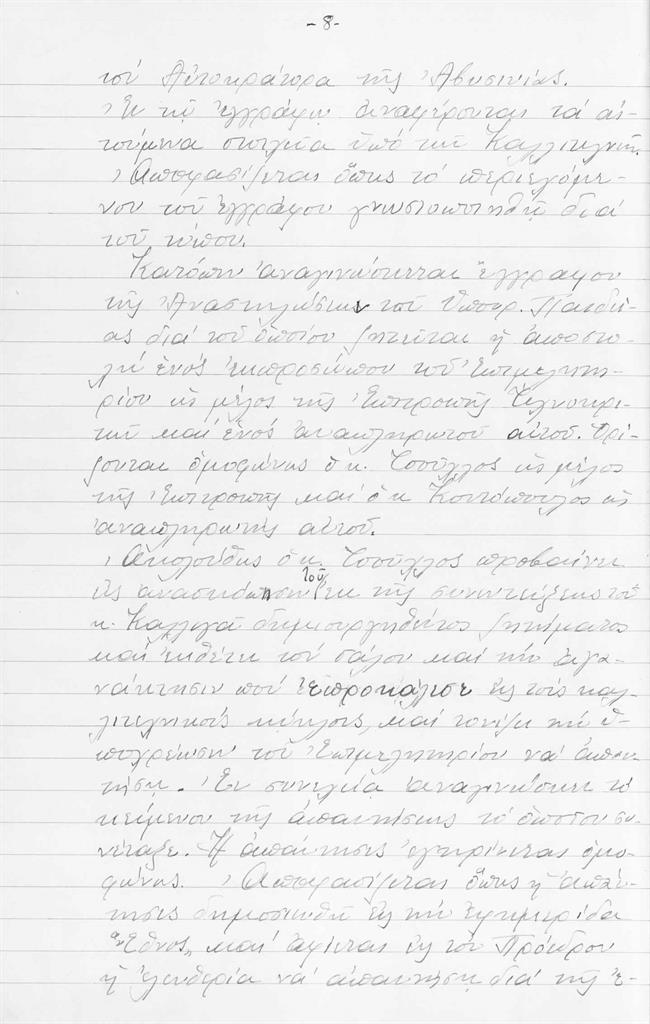 -8-
τοῦ Αὐτοκράτορα τῆς Ἀβυσινίας.
Ἐν τῷ ἐγγράφῳ ἀναφέρονται τά αἰ-
τούμενα στοιχεῖα ὑπό τῶν Καλλιτεχνῶν.
Ἀποφασίζεται ὅπως τό περιεχόμε-
νον τοῦ ἐγγράφου γνωστοποιηθῆ διά
τοῦ τύπου.
Κατόπιν ἀναγινώσκεται ἔγγραφον
τῆς Ἀναστηλώσεως τοῦ Ὑπουρ. Παιδεί-
ας διά τοῦ ὁποίου ζητεῖται ἡ ἀποστο-
λή ἑνός ἐκπροσώπου τοῦ Ἐπιμελητη-
ρίου ὡς μέλος τῆς Ἐπιτροπῆς Τεχνοκρι-
τῶν καί ἑνός ἀναπληρωτοῦ αὐτοῦ. Ὁρί-
ζονται ὁμοφώνως ὁ κ. Τσοῦχλος ὡς μέλος
τῆς Ἐπιτροπῆς καί ὁ κ. Κοντόπουλος ὡς
ἀναπληρωτής αὐτοῦ.
Ἀκολούθως ὁ κ. Τσοῦχλος προβαίνει
εἰς ἀνασκόπησιν τοῦ ἐκ τῆς συνεντεύξεως τοῦ
κ. Καλλιγᾶ δημιουργηθέντος ζητήματος
καί ἐκθέτει τόν σάλον καί τήν ἀγα-
νάκτησιν πού ἐπροκάλεσε εἰς τούς καλ-
λιτεχνικούς κύκλους, καί τονίζει τήν ὑ-
ποχρέωσιν τοῦ Ἐπιμελητηρίου νά ἀπαν-
τήση. Ἐν συνεχείᾳ ἀναγινώσκει τό
κείμενον τῆς ἀπαντήσεως τό ὁποῖον συ-
νέταξε. Ἡ ἀπάντησις ἐγκρίνεται ὁμο-
φώνως. Ἀποφασίζεται ὅπως ἡ ἀπάν-
τησις δημοσιευθῆ εἰς τήν ἐφημερίδα
"Ἔθνος" καί ἀφίεται εἰς τόν Πρόεδρον
ἡ ἐλευθερία νά ἀπαντήση διά τῆς ἐ-